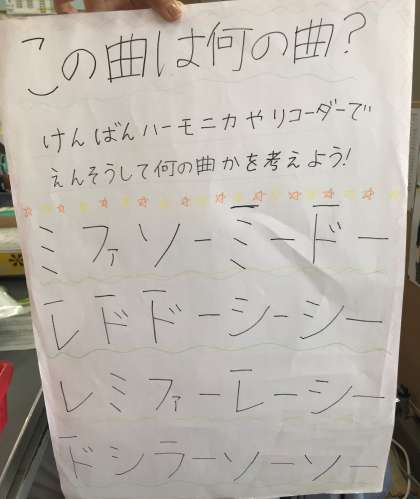 この曲は何の曲?
けんばんハーモニカやリコーダーで
えんそうして何の曲かを考えよう!
ミファソーミードー
レドドーシーシー
レミファーレーシー
ドシラーソーソー